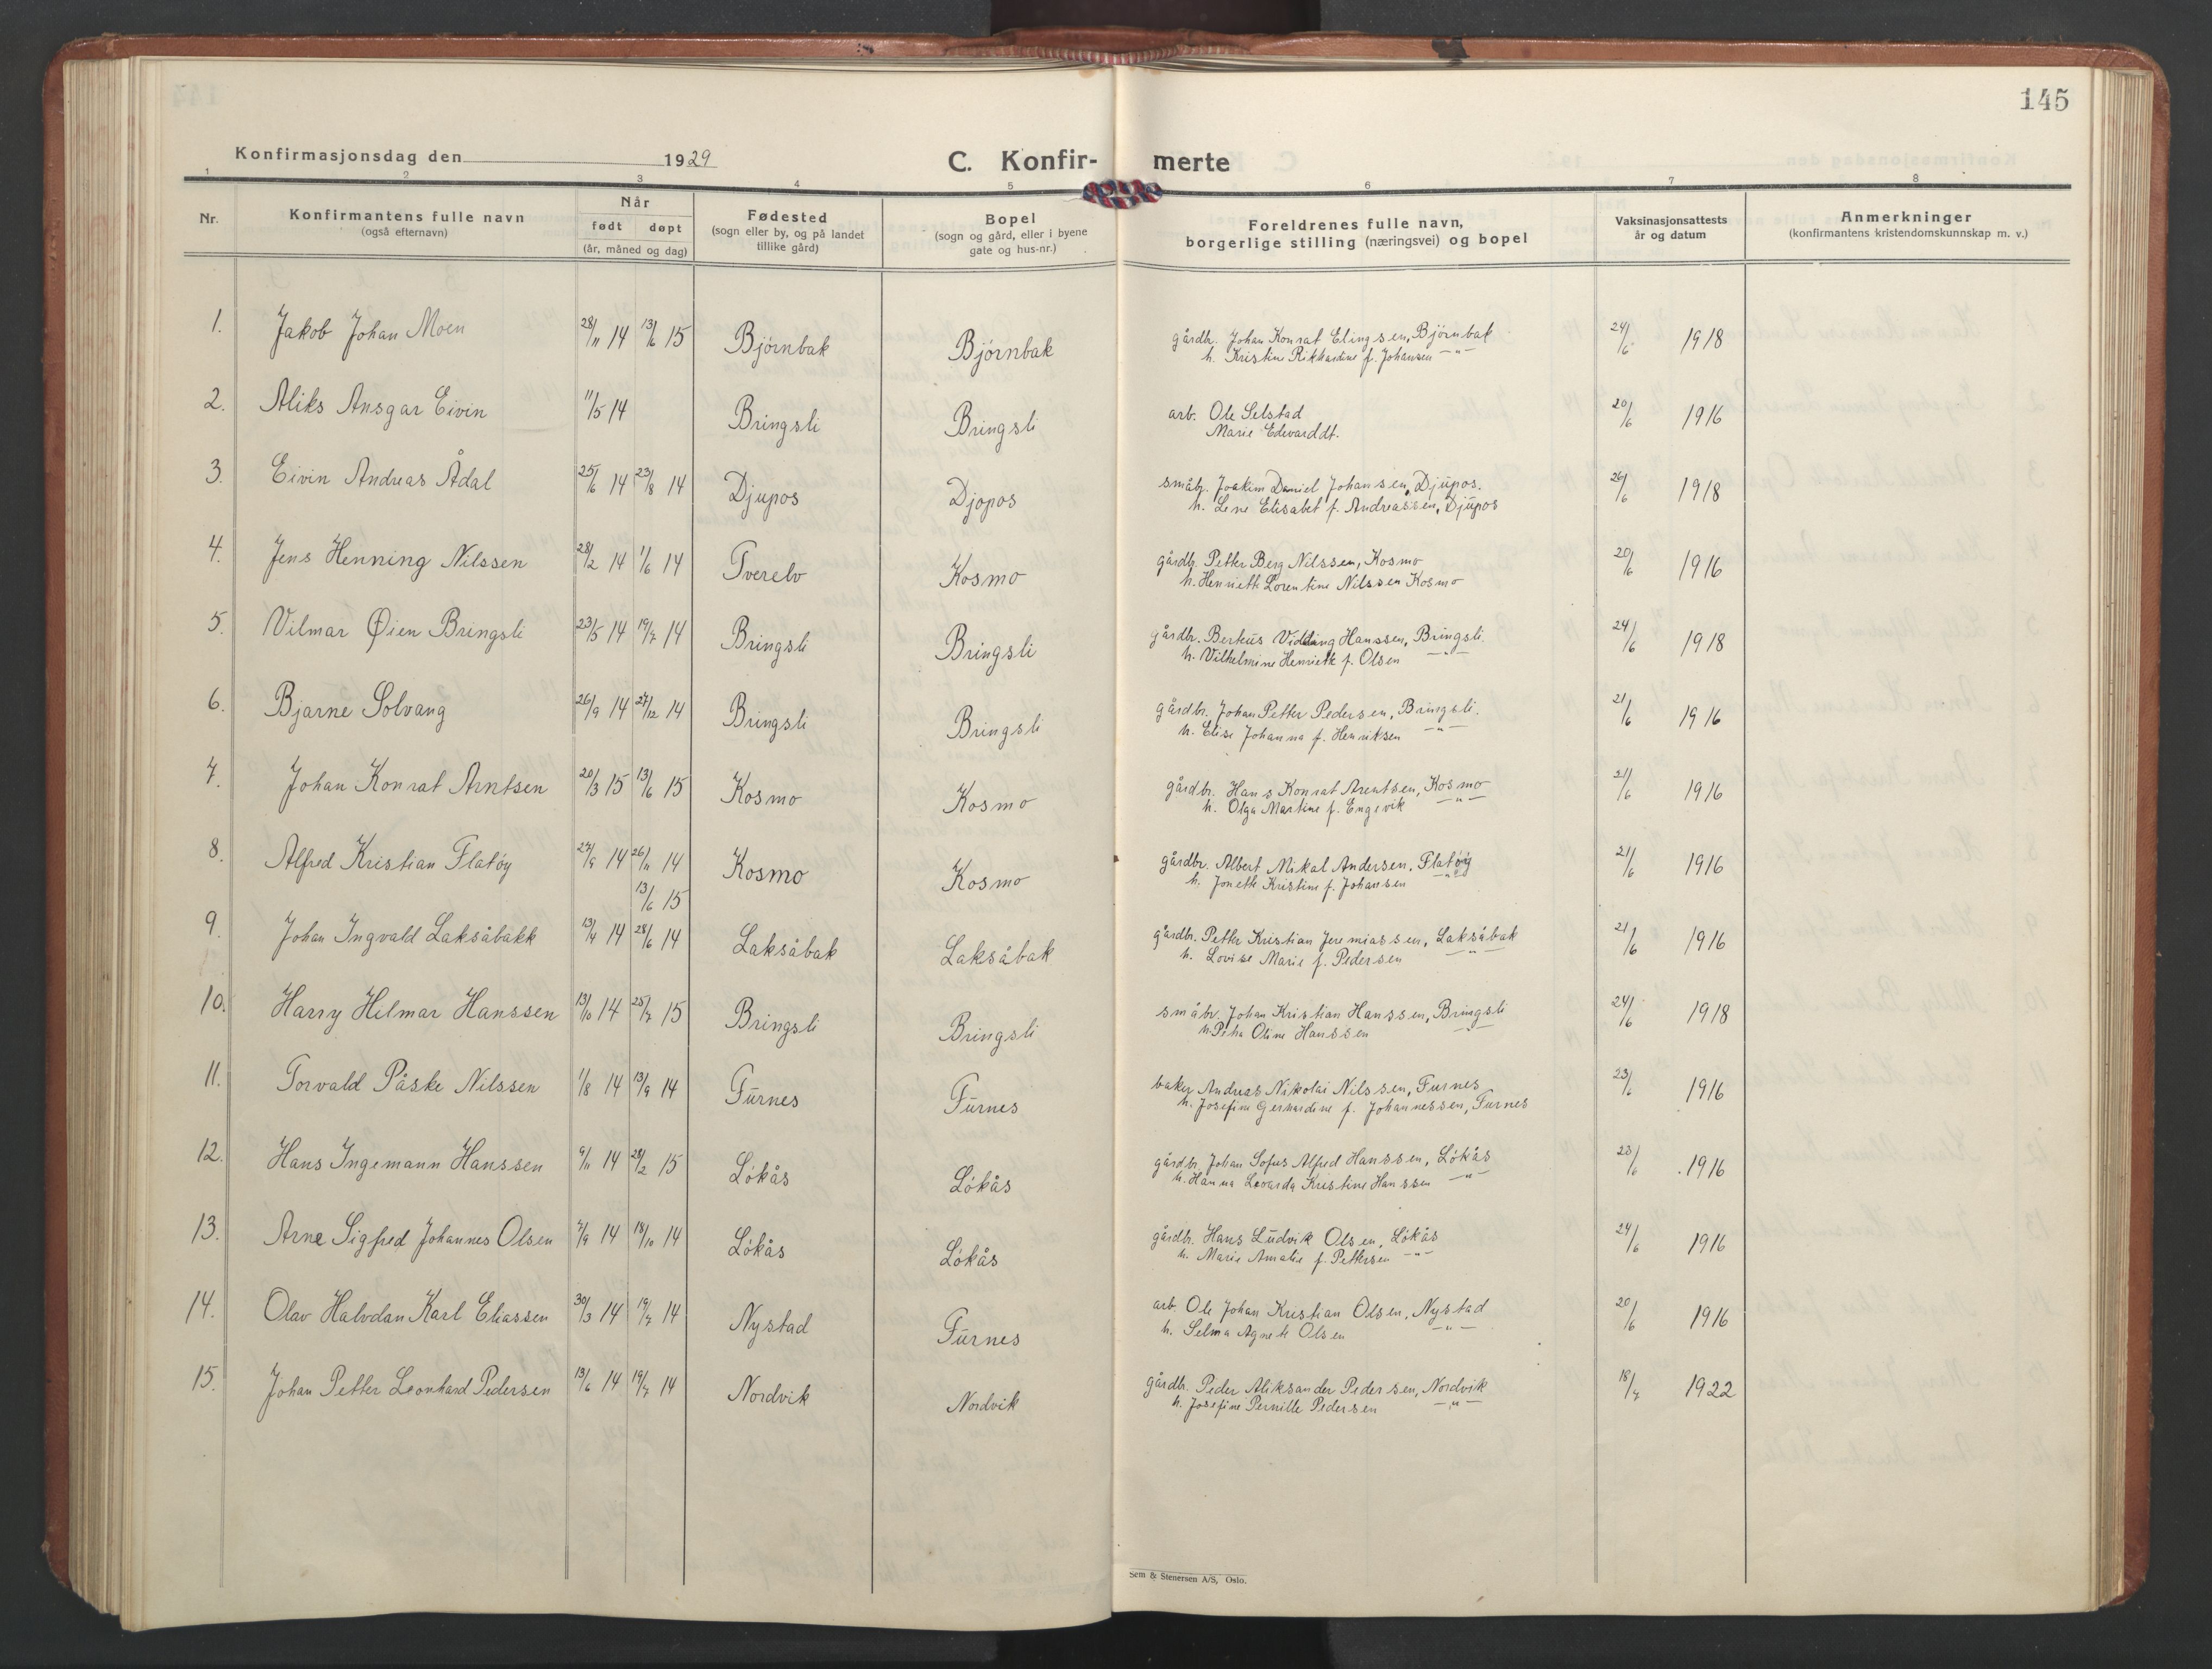 145
Konfirmasjonsdag den 1929 C. Konfir- merte
1 2 3 4 5 6 7 8
Nr. Konfirmantens fulle navn (også efternavn) Når født døpt (år, måned og dag) Fødested (sogn eller by, og på landet tillike gård) Bopel (sogn og gård, eller i byene gate og hus-nr.) Foreldrenes fulle navn, borgerlige stilling (næringsvei) og bopel Vaksinasjonsattests år og datum Anmerkninger (konfirmantens kristendomskunnskap m. v.)
1. Jakob Johan Moen 28/11 14 13/6 15 Bjørnbak Bjørnbak gårdbr. Johan Konrat Elingsen, Bjørnbak 24/6 1918
h. Kristine Rikhardine f. Johansen -"-
2. Aliks Ansgar Eivin 11/5 14 Bringsli Bringsli arb. Ole Selstad 20/6 1916
Marie Edvarddt.
3. Eivin Andreas Ådal 25/6 14 23/8 14 Djupos Djopos småbr. Joakim Daniel Johansen, Djupos. 26/6 1918
h. Lene Elisabet f. Andreassen, Djupos
4. Jens Henning Nilssen 28/2 14 1/6 14 Tverelv Kosmo gårdbr. Petter Berg Nilssen, Kosmo 20/6 1916
h. Henriette Lorentine Nilssen Kosmo
5. Vilmar Øien Bringsli 23/5 14 19/7 14 Bringsli Bringsli gårdbr. Berteus Vidding Hanssen, Bringsli 24/6 1918
h. Vilhelmine Henriette f. Olsen -"-
6. Bjarne Solvang 26/9 14 27/12 14 Bringsli Bringsli gårdbr. Johan Petter Pedersen, Bringsli. 21/6 1916
h. Elise Johanna f. Henriksen -"-
7. Johan Konrat Arntsen 20/3 15 13/6 15 Kosmo Kosmo gårdbr. Hans Konrat Arentsen, Kosmo 21/6 1916
h. Olga Martine f. Engevik -"-
8. Alfred Kristian Flatøy 27/9 14 26/11 14 Kosmo Kosmo gårdbr. Albert Mikal Andersen, Flatøy 21/6 1916
13/6 15 h. Jonette Kristine f. Johansen -"-
9. Johan Ingvald Laksåbakk 13/4 14 28/6 14 Laksåbak Laksåbak gårdbr. Petter Kristian Jeremiassen, Laksåbak 21/6 1916
h. Lovise Marie f. Pedersen -"-
10. Harry Hilmar Hanssen 13/10 14 25/7 15 Bringsli Bringsli småbr. Johan Kristian Hanssen, Bringsli 24/6 1918
h. Petra Oline Hanssen -"-
11. Torvald Påske Nilssen 1/8 14 13/9 14 Furnes Furnes baker Andreas Nikolai Nilssen, Furnes 23/6 1916
h. Josefine Gerhardine f. Johannessen, Furnes
12. Hans Ingemann Hanssen 9/11 14 28/2 15 Løkås Løkås gårdbr. Johan Sofus Alfred Hanssen, Løkås 23/6 1916
h. Hanna Leoarda Kristine Hanssen -"-
13. Arne Sigfred Johannes Olsen 7/9 14 18/10 14 Løkås Løkås gårdbr. Hans Ludvik Olsen, Løkås 24/6 1916
h. Marie Amalie f. Pettersen -"-
14. Olav Halvdan Karl Eliassen 30/3 14 19/7 14 Nystad Furnes arb. Ole Johan Kristian Olsen, Nystad 20/6 1916
h. Selma Agnete Olsen -"-
15. Johan Petter Leonhard Pedersen 13/6 14 19/7 14 Nordvik Nordvik gårdbr. Peder Aliksander Pedersen, Nordvik 18/7 1922
h. Josefine Pernille Pedersen -"-
Sem & Stenersen A/S, Oslo.